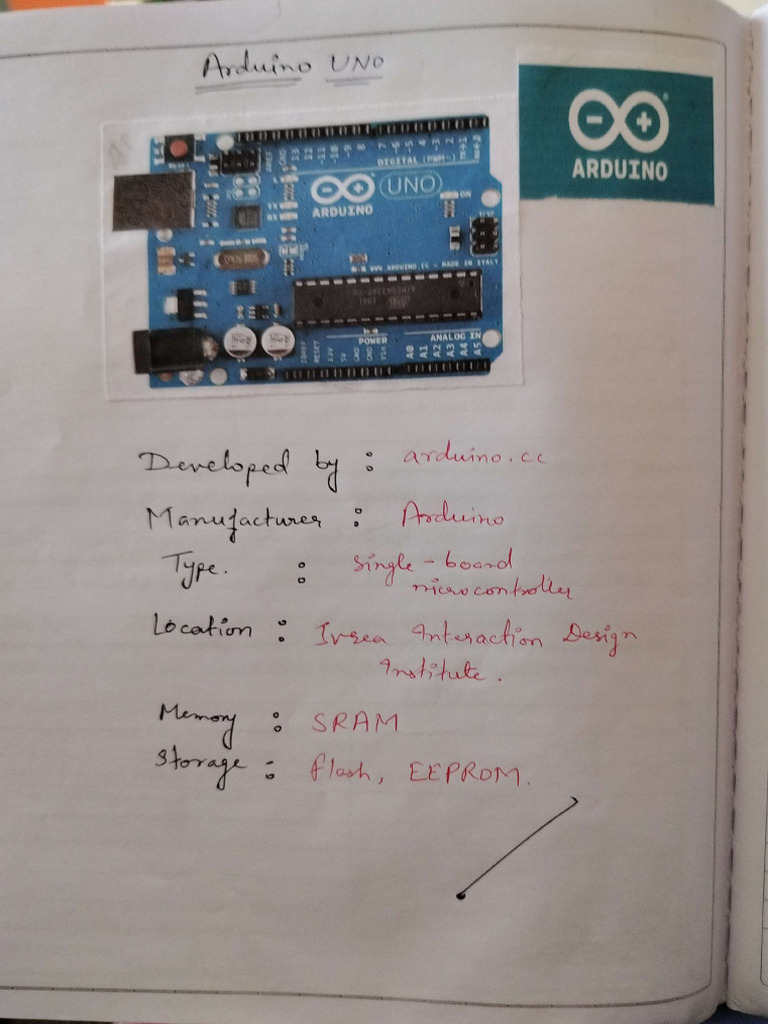 Arduino UNO
ARDUINO
DIGITAL (PWM~)
ARDUINO
UNO
ON
TX
RX
WWW.ARDUINO.CC - MADE IN ITALY
POWER
ANALOG IN
RESET
3.3V
5V
GND
GND
Vin
A0
A1
A2
A3
A4
A5
Developed by : arduino.cc
Manufacturer : Arduino
Type. : single-board
microcontroller
Location : Ivrea Interaction Design
Institute.
Memory : SRAM
Storage : flash, EEPROM.